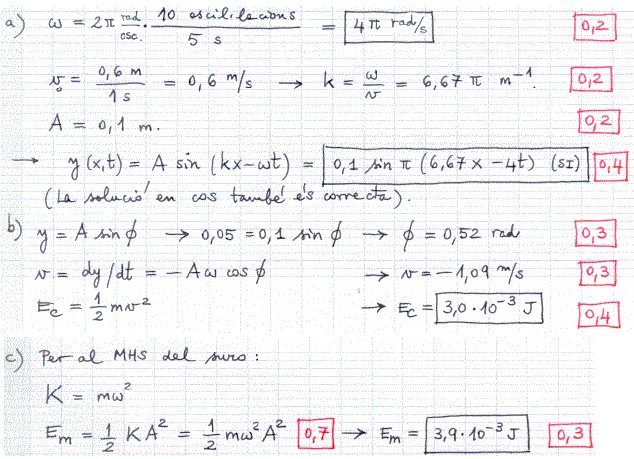 a) ω = 2π rad/osc. · 10 oscil·lacions / 5 s = 4π rad/s 0,2
v₀ = 0,6 m / 1 s = 0,6 m/s → k = ω/v = 6,67 π m⁻¹. 0,2
A = 0,1 m. 0,2
→ y(x,t) = A sin (kx-ωt) = 0,1 sin π (6,67x -4t) (SI) 0,4
(La solució en cos també és correcta).
b) y = A sin ϕ → 0,05 = 0,1 sin ϕ → ϕ = 0,52 rad 0,3
v = dy/dt = -Aω cos ϕ → v = -1,09 m/s 0,3
Ec = 1/2 mv² → Ec = 3,0·10⁻³ J 0,4
c) Per al MHS del suro :
K = mω²
Em = 1/2 KA² = 1/2 mω²A² 0,7 → Em = 3,9·10⁻³ J 0,3